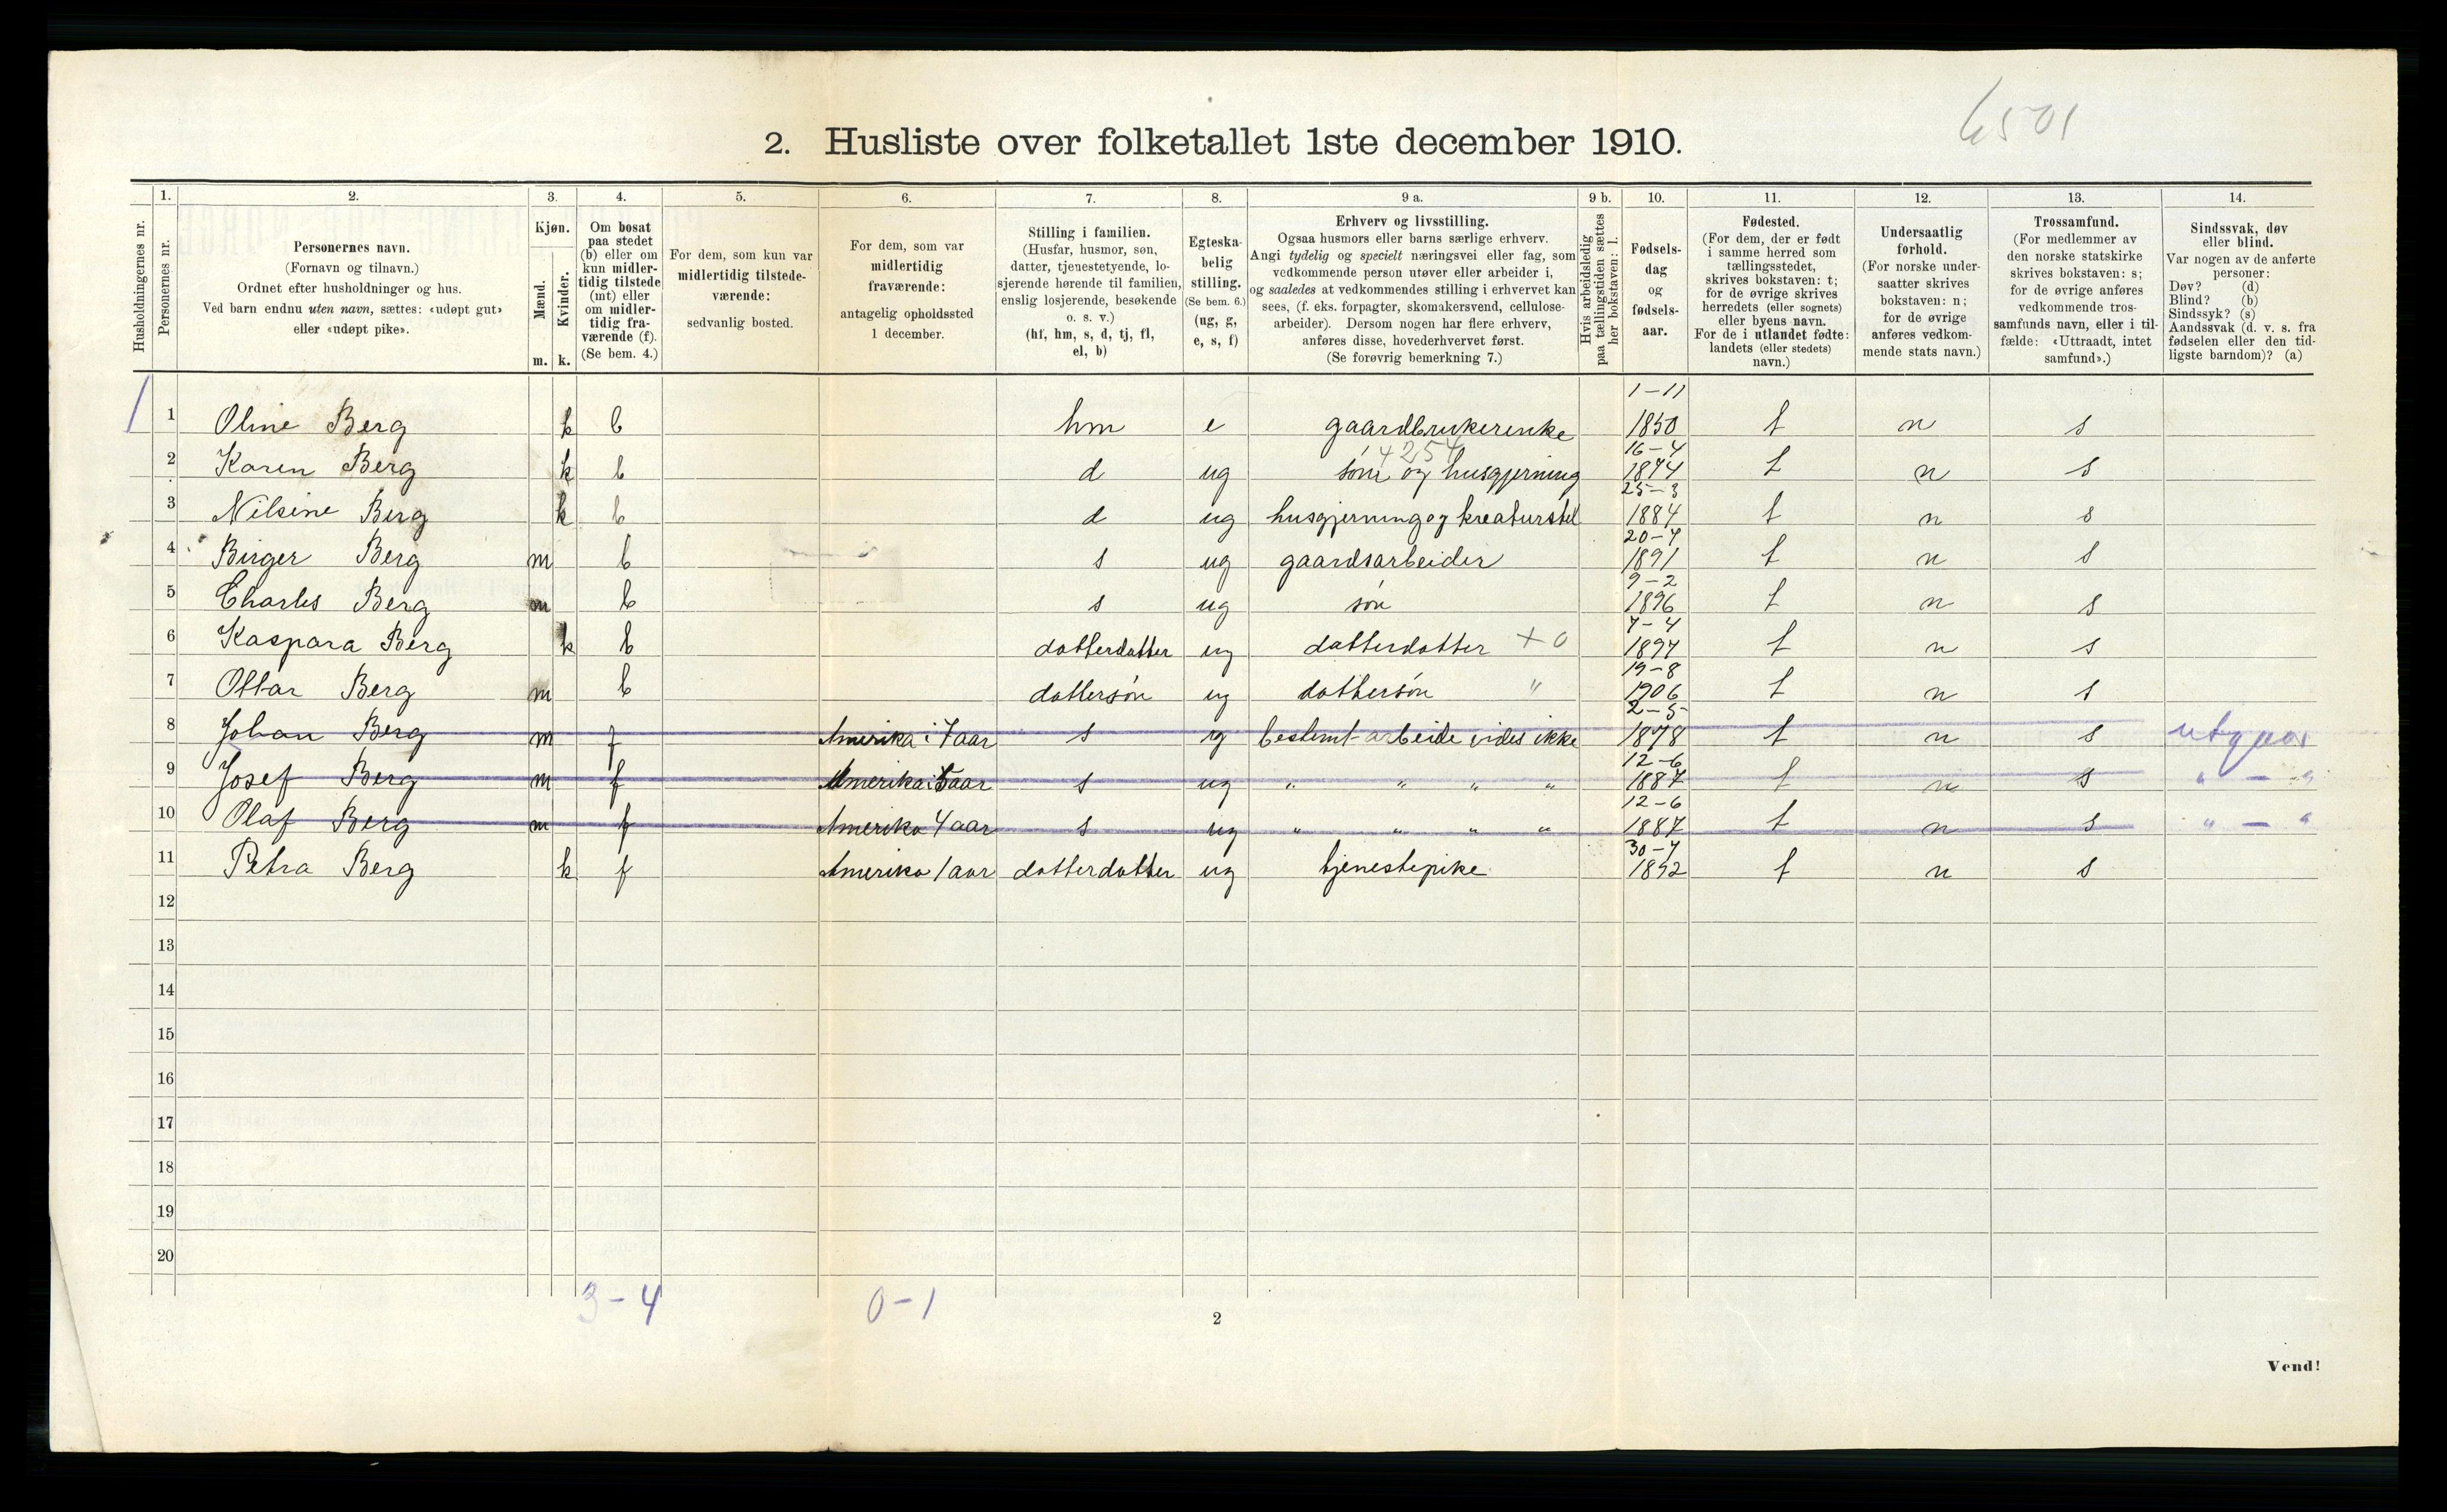 6501
2. Husliste over folketallet 1ste december 1910.
Husholdningernes nr.
1.
Personernes nr.
2.
Personernes navn.
(Fornavn og tilnavn.)
Ordnet efter husholdninger og hus.
Ved barn endnu uten navn, sættes: «udøpt gut»
eller «udøpt pike».
3.
Kjøn.
Mænd.
Kvinder.
m. k.
4.
Om bosat
paa stedet
(b) eller om
kun midler-
tidig tilstede
(mt) eller
om midler-
tidig fra-
værende (f).
(Se bem. 4.)
5.
For dem, som kun var
midlertidig tilstede-
værende:
sedvanlig bosted.
6.
For dem, som var
midlertidig
fraværende:
antagelig opholdssted
1 december.
7.
Stilling i familien.
(Husfar, husmor, søn,
datter, tjenestetyende, lo-
sjerende hørende til familien,
enslig losjerende, besøkende
o. s. v.)
(hf, hm, s, d, tj, fl,
el, b)
8.
Egteska-
belig
stilling.
(Se bem. 6.)
(ug, g,
e, s, f)
9 a.
Erhverv og livsstilling.
Ogsaa husmors eller barns særlige erhverv.
Angi tydelig og specielt næringsvei eller fag, som
vedkommende person utøver eller arbeider i,
og saaledes at vedkommendes stilling i erhvervet kan
sees, (f. eks. forpagter, skomakersvend, cellulose-
arbeider). Dersom nogen har flere erhverv,
anføres disse, hovederhvervet først.
(Se forøvrig bemerkning 7.)
9 b.
Hvis arbeidsledig
paa tællingstiden sættes
her bokstaven: l.
10.
Fødsels-
dag
og
fødsels-
aar.
11.
Fødested.
(For dem, der er født
i samme herred som
tællingsstedet,
skrives bokstaven: t;
for de øvrige skrives
herredets (eller sognets)
eller byens navn.
For de i utlandet fødte:
landets (eller stedets)
navn.)
12.
Undersaatlig
forhold.
(For norske under-
saatter skrives
bokstaven: n;
for de øvrige
anføres vedkom-
mende stats navn.)
13.
Trossamfund.
(For medlemmer av
den norske statskirke
skrives bokstaven: s;
for de øvrige anføres
vedkommende tros-
samfunds navn, eller i til-
fælde: «Uttraadt, intet
samfund».)
14.
Sindssvak, døv
eller blind.
Var nogen av de anførte
personer:
Døv? (d)
Blind? (b)
Sindssyk? (s)
Aandssvak (d. v. s. fra
fødselen eller den tid-
ligste barndom)? (a)
1 1 Oline Berg k b hm e gaardbrukerenke 1-11 1850 t n s
4254
2 Karen Berg k b d ug søm og husgjerning 16-4 1874 t n s
3 Nilsine Berg k b d ug husgjerning og kreaturstel 25-3 1884 t n s
4 Birger Berg m b s ug gaardsarbeider 20-7 1891 t n s
5 Charles Berg m b s ug søn 9-2 1896 t n s
6 Kaspara Berg k b datterdatter ug datterdatter + 0 7-4 1897 t n s
7 Ottar Berg m b dattersøn ug dattersøn " 19-8 1906 t n s
8 Johan Berg m f Amerika i 7 aar s ug bestemt arbeide vides ikke 2-5 1878 t n s utgaar
9 Josef Berg m f Amerika i 5 aar s ug " " " " 12-6 1887 t n s " — "
10 Olaf Berg m f Amerika 4 aar s ug " " " " 12-6 1887 t n s " — "
11 Petra Berg k f Amerika 1 aar datterdatter ug tjenestepike 30-7 1892 t n s
12
13
14
15
16
17
18
19
20
3-4
0-1
2
Vend!